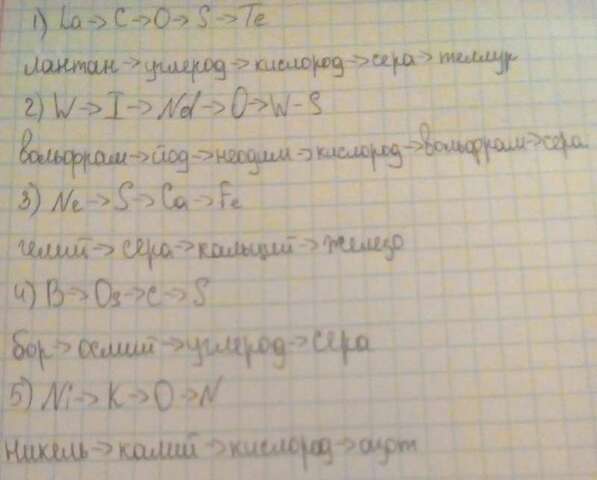 1) La→C→O→S→Te
лантан→углерод→кислород→сера→теллур
2) W→I→Nd→O→W-S
вольфрам→йод→неодим→кислород→вольфрам→сера.
3) Ne→S→Ca→Fe
гелий→сера→кальций→железо
4) B→Os→C→S
бор→осмий→углерод→сера
5) Ni→K→O→N
никель→калий→кислород→азот